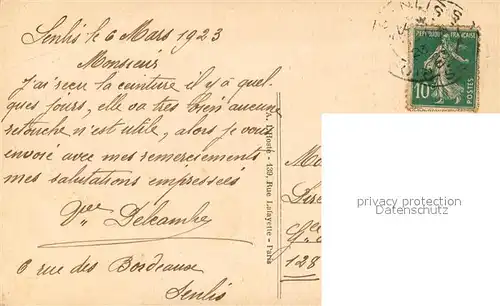 Senlis le 6 Mars 1923
Monsieur
J'ai reçu la ceinture il y a quel-
ques jours, elle va très bien aucune
retouche n'est utile, alors je vous
envoie avec mes remerciements
mes salutations empressées
Vve Delcambre
6 rue des Bordeaux
Senlis
A. L'Hoste - 139, Rue Lafayette - Paris
REPUBLIQUE FRANÇAISE
10
POSTES
128
privacy protection
Datenschutz